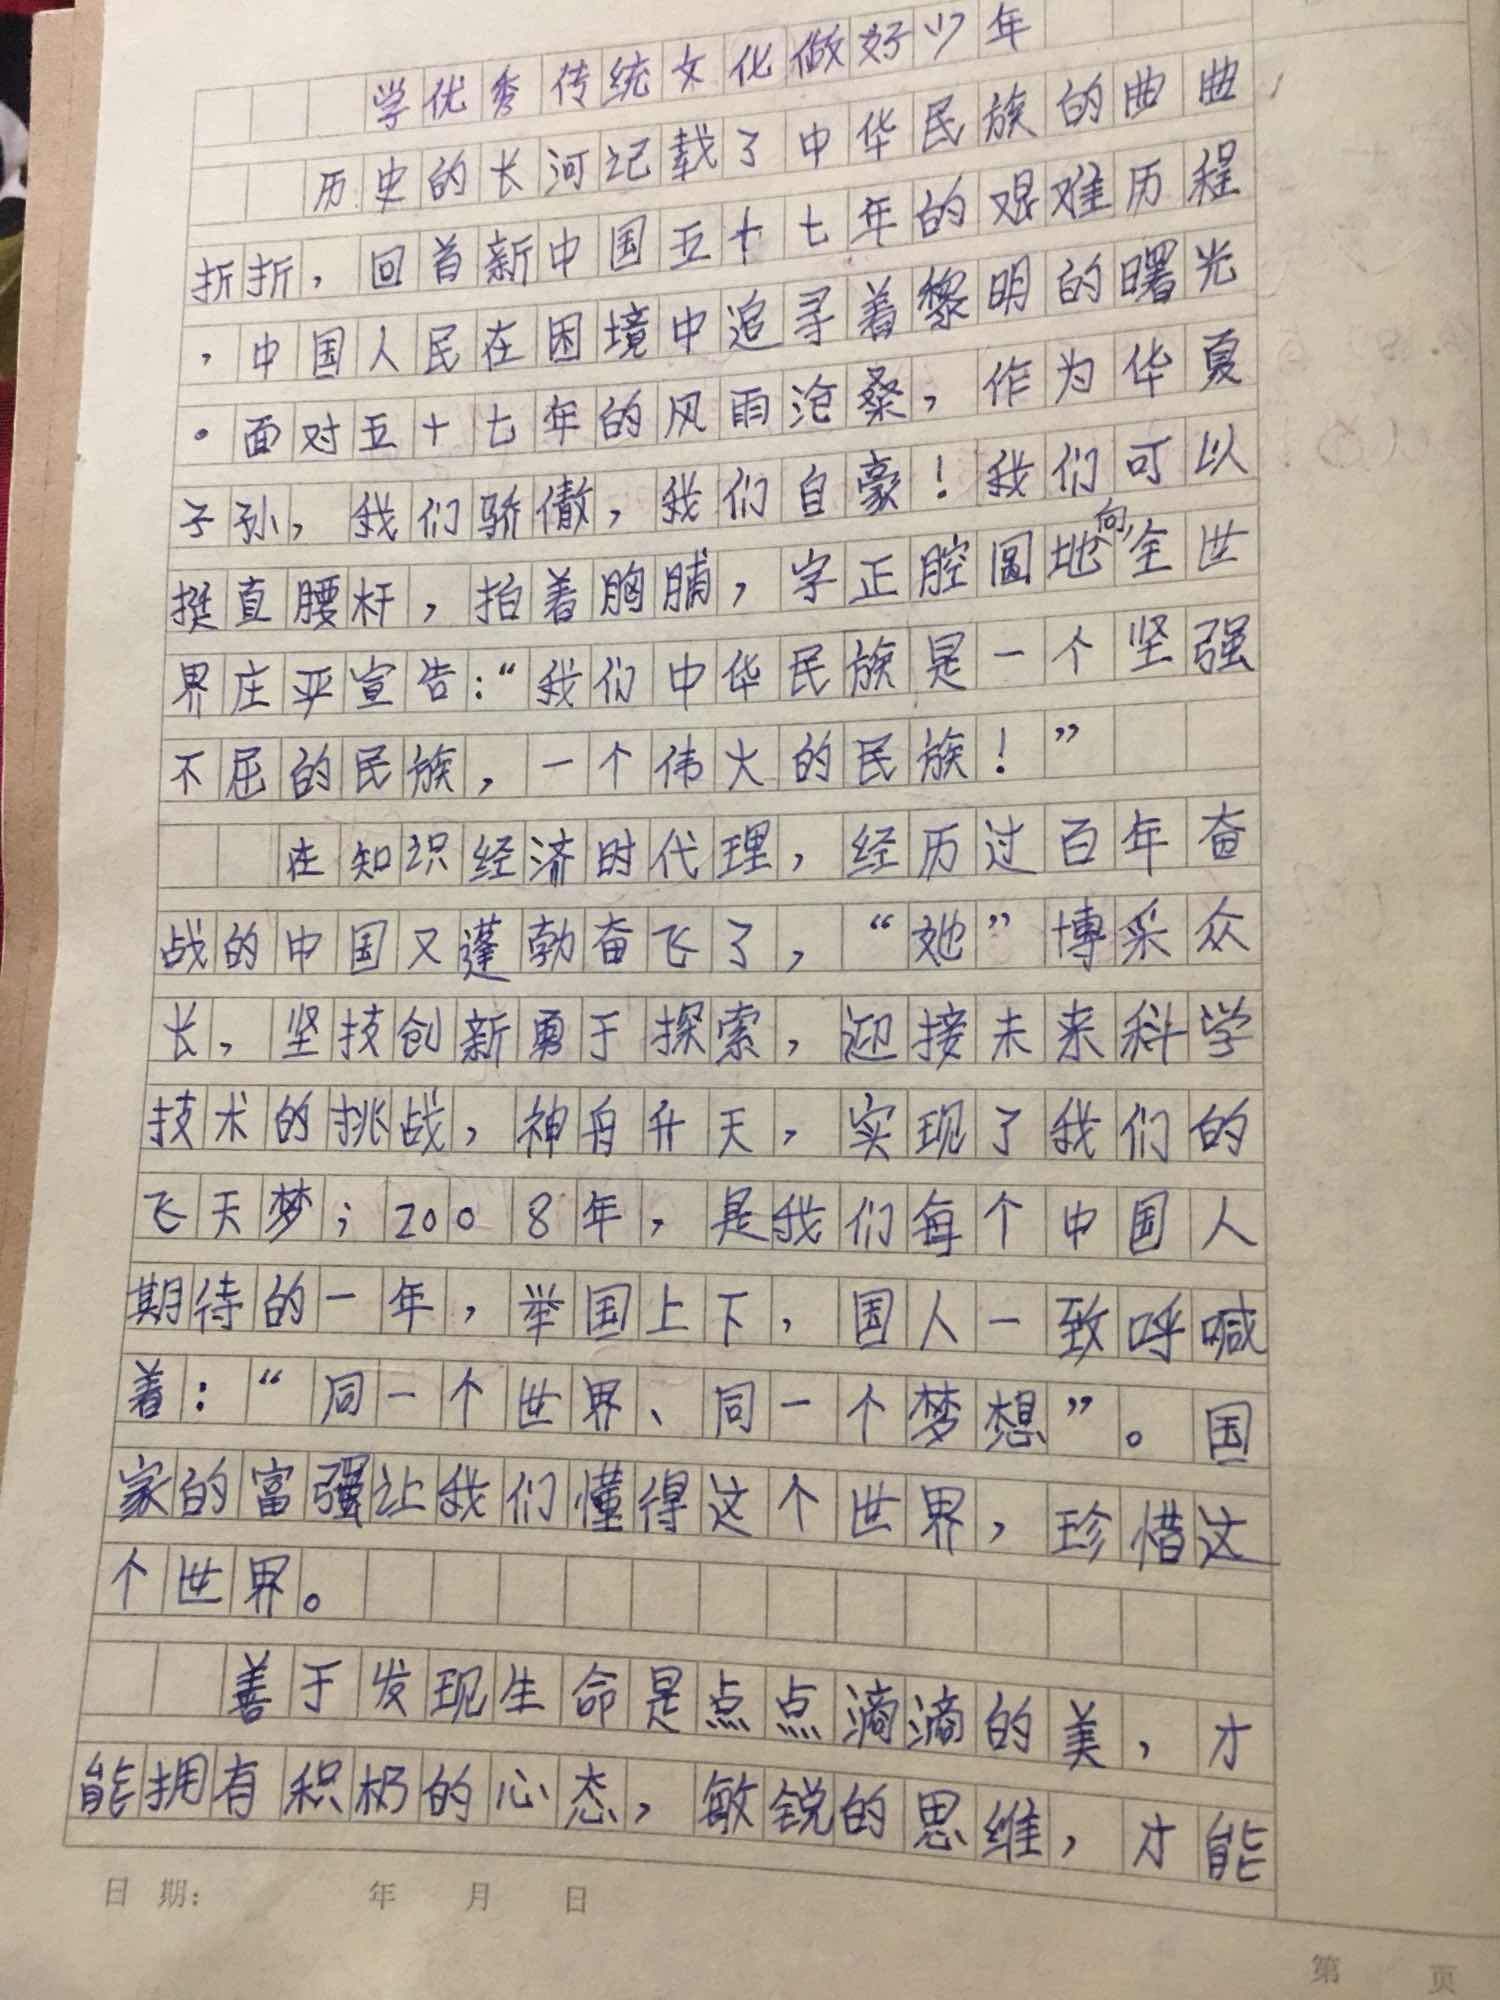 学优秀传统文化做好少年
历史的长河记载了中华民族的曲曲
折折，回首新中国五十七年的艰难历程
，中国人民在困境中追寻着黎明的曙光
。面对五十七年的风雨沧桑，作为华夏
子孙，我们骄傲，我们自豪！我们可以
挺直腰杆，拍着胸脯，字正腔圆地向全世
界庄严宣告：“我们中华民族是一个坚强
不屈的民族，一个伟大的民族！”
在知识经济时代理，经历过百年奋
战的中国又蓬勃奋飞了，“她”博采众
长，坚技创新勇于探索，迎接未来科学
技术的挑战，神舟升天，实现了我们的
飞天梦；2008年，是我们每个中国人
期待的一年，举国上下，国人一致呼喊
着：“同一个世界、同一个梦想”。国
家的富强让我们懂得这个世界，珍惜这
个世界。
善于发现生命是点点滴滴的美，才
能拥有积极的心态，敏锐的思维，才能
日期： 年 月 日
第 页